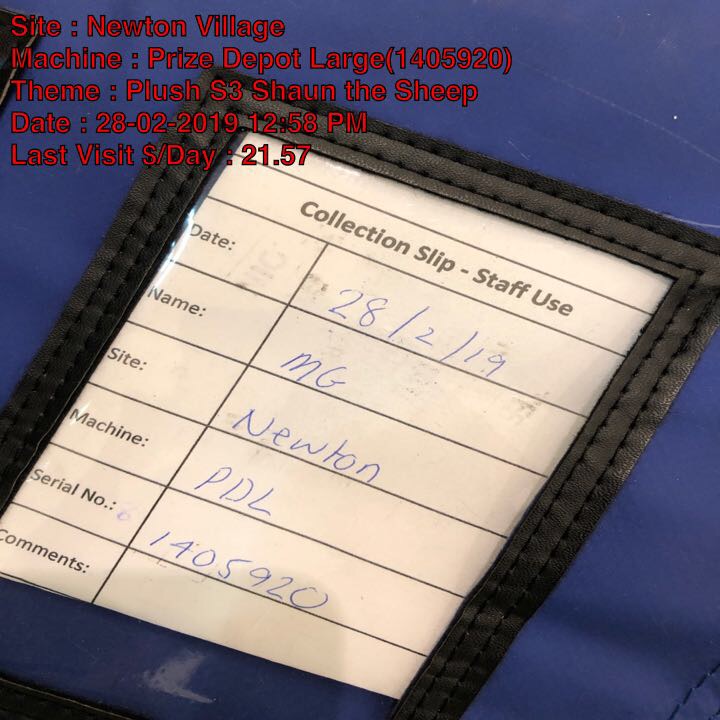 Site : Newton Village
Machine : Prize Depot Large(1405920)
Theme : Plush S3 Shaun the Sheep
Date : 28-02-2019 12:58 PM
Last Visit $/Day : 21.57
Collection Slip - Staff Use
Date: 28/2/19
Name: MG
Site: Newton
Machine: PDL
Serial No.: 1405920
Comments: